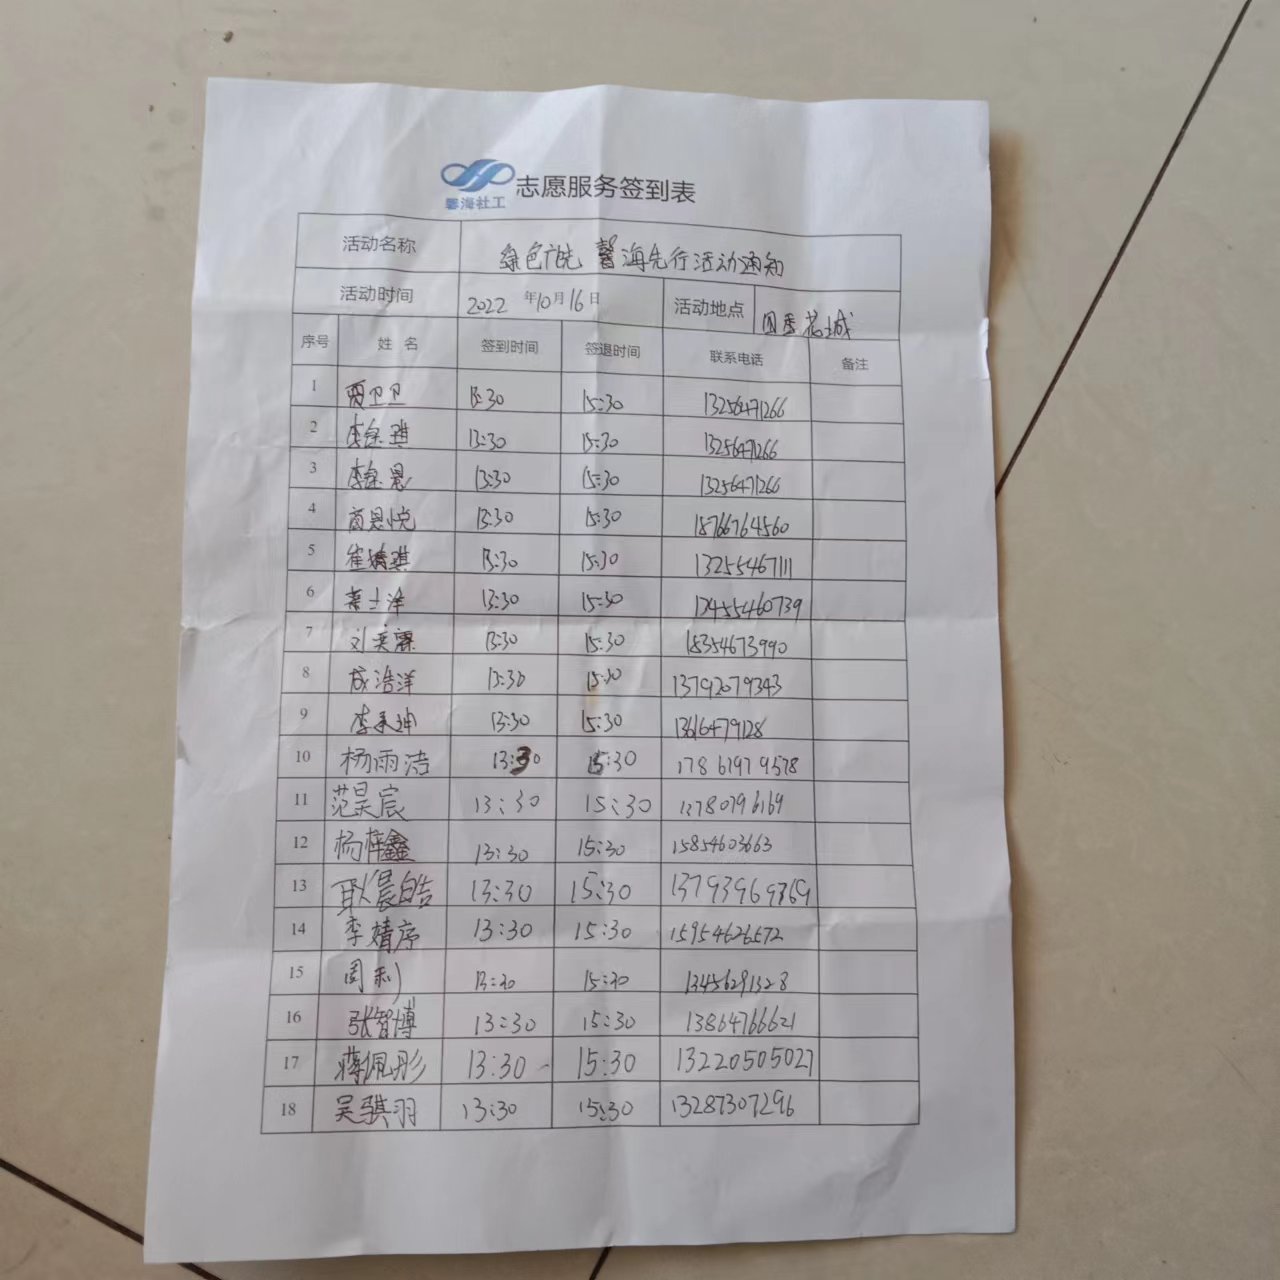 馨海社工
志愿服务签到表
活动名称 绿色 馨海先行活动通知
活动时间 2022年10月16日 活动地点 四季花城
序号 姓名 签到时间 签退时间 联系电话 备注
1 贾卫卫 13:30 15:30 13256471266
2 李钰琪 13:30 15:30 13256471266
3 13:30 15:30 13256471266
4 13:30 15:30 18766764560
5 崔婧琪 13:30 15:30 13255467111
6 13:30 15:30
7 刘奕霖 13:30 15:30 18354673990
8 成浩洋 13:30 15:30 13792079343
9 李承坤 13:30 15:30 13616479128
10 杨雨洁 13:30 15:30
11 范昊宸 13:30 15:30 13780796169
12 杨梓鑫 13:30 15:30 15854603663
13 耿晨皓 13:30 15:30 13793969869
14 李婧序 13:30 15:30 15954626572
15 周利 13:30 15:30 13456291328
16 张智博 13:30 15:30 13864766621
17 蒋佩彤 13:30 15:30 13220505027
18 吴骐羽 13:30 15:30 13287307296